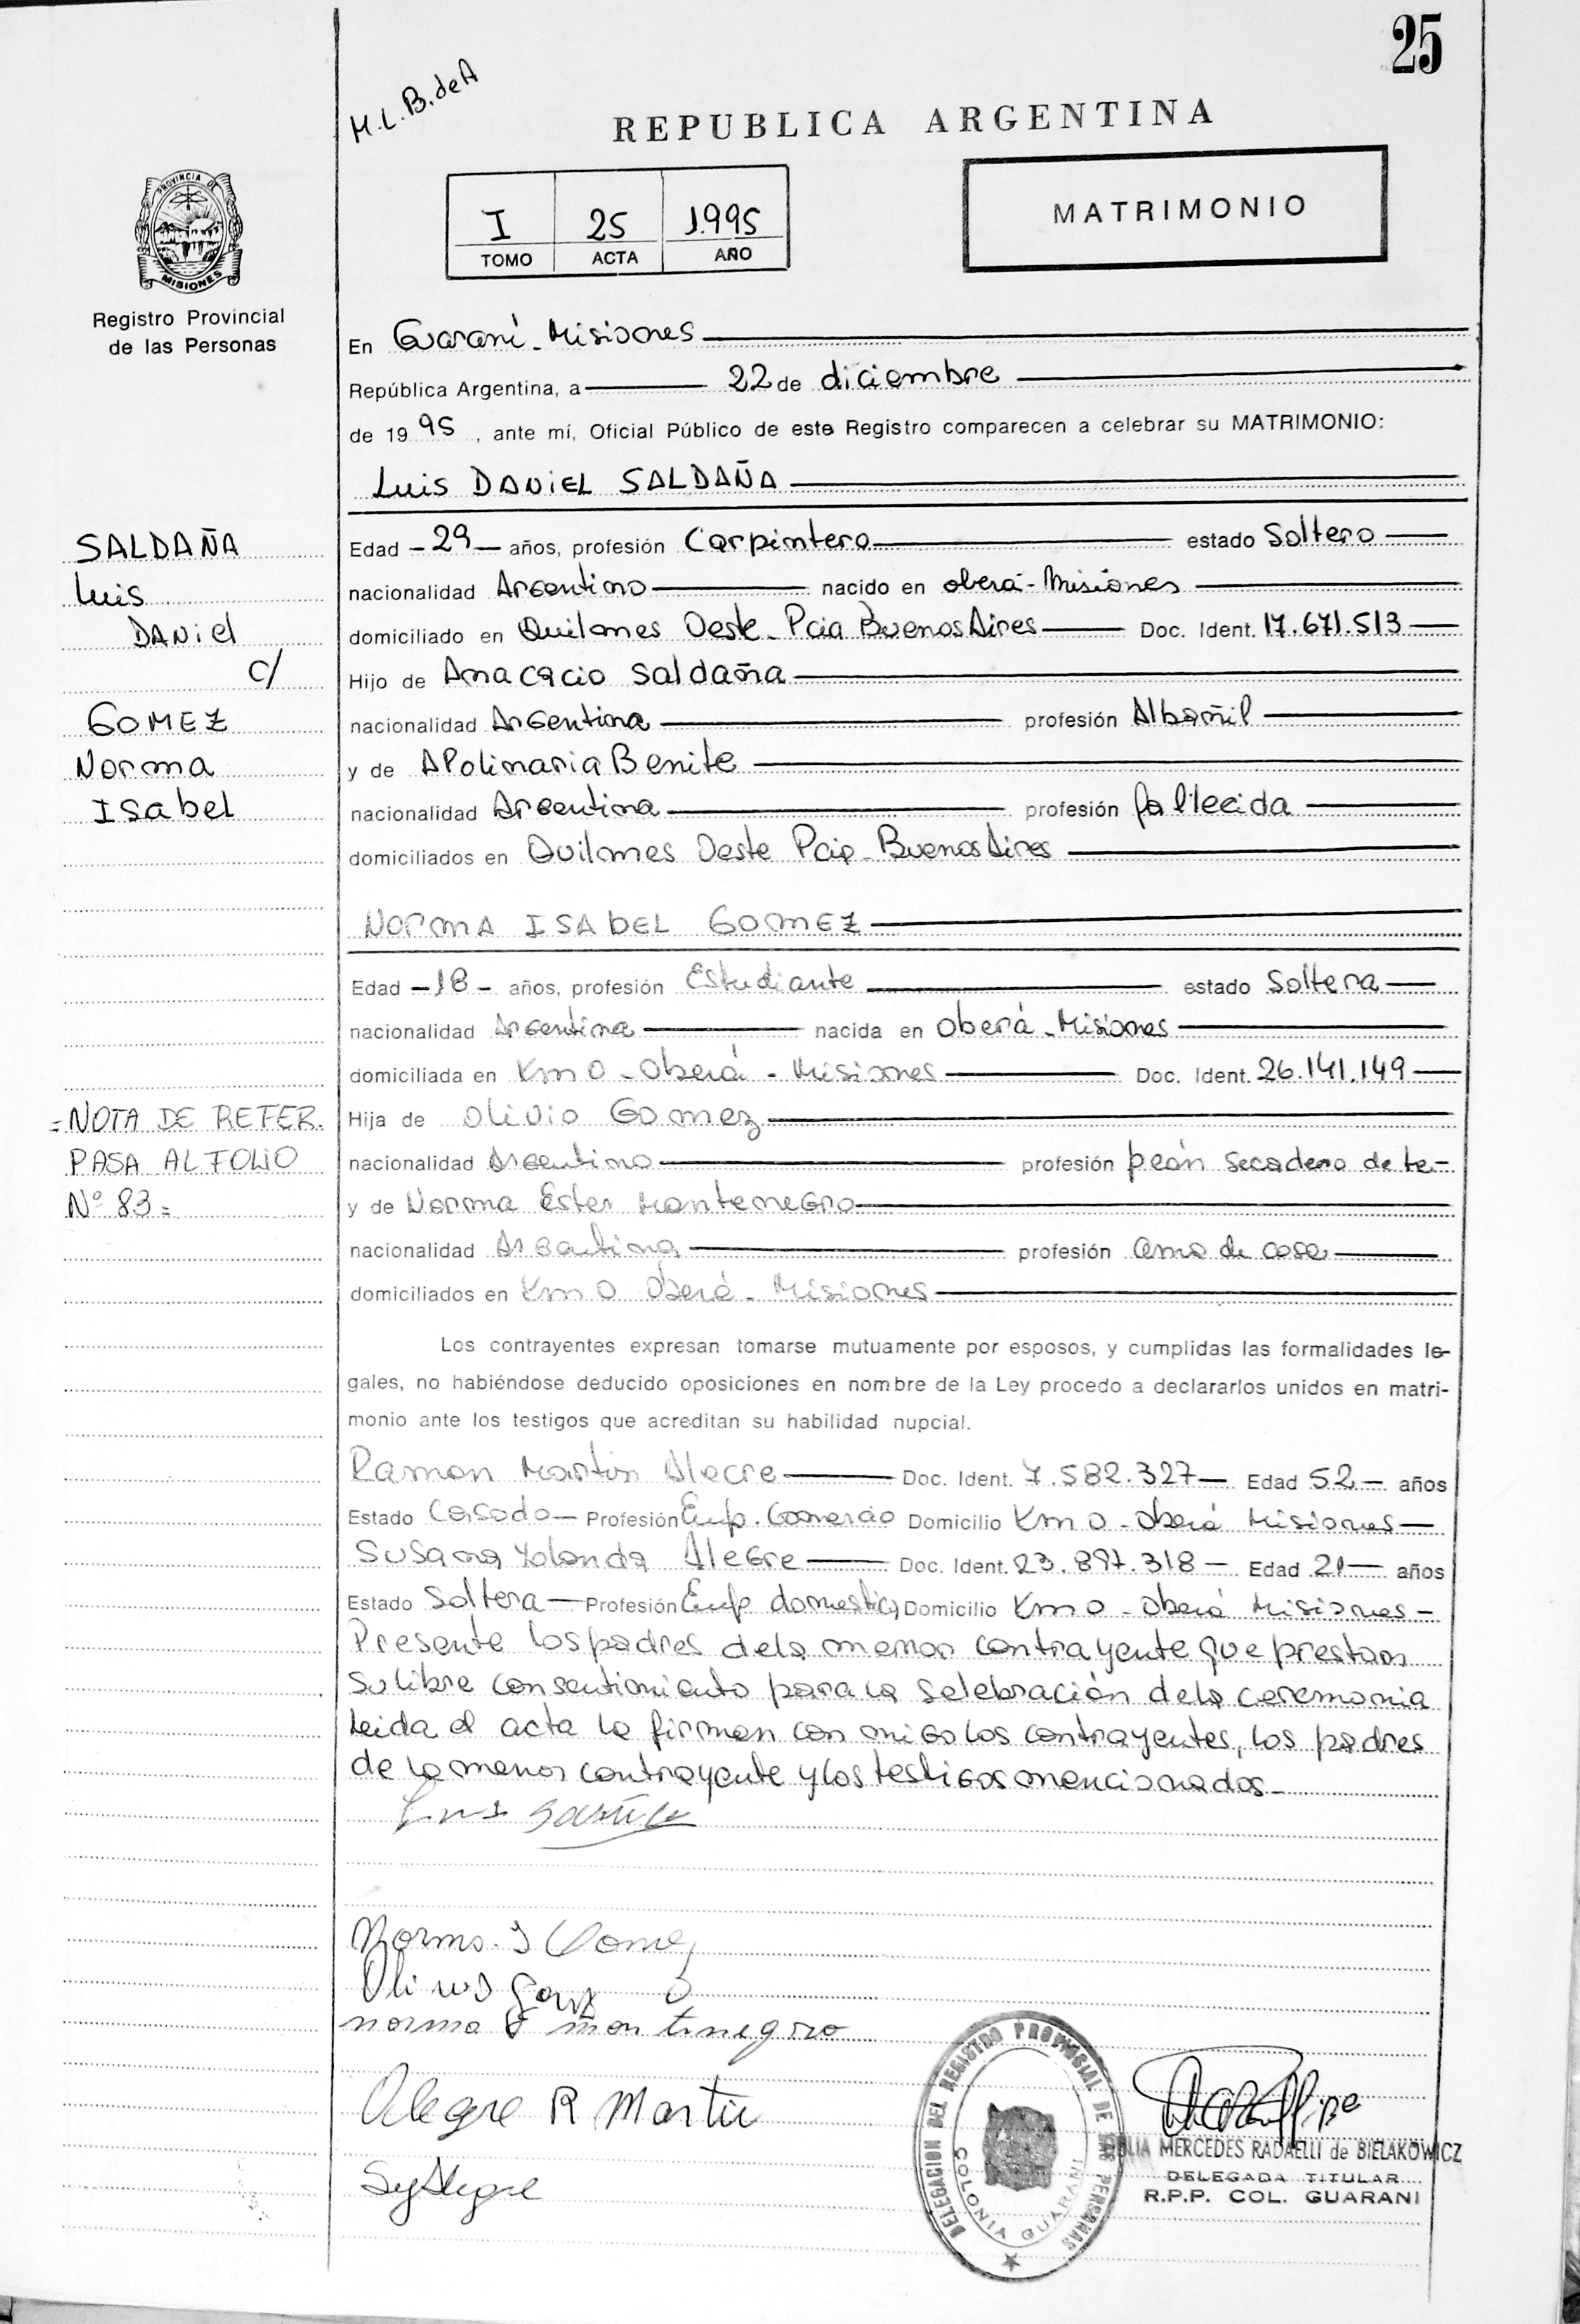 25
M.L.B. de A
REPUBLICA ARGENTINA
I 25 1.995
TOMO ACTA AÑO
MATRIMONIO
PROVINCIA DE
MISIONES
Registro Provincial
de las Personas
En Guaraní - Misiones
República Argentina, a 22 de diciembre
de 19 95, ante mí, Oficial Público de este Registro comparecen a celebrar su MATRIMONIO:
Luis DANiEL SALDAÑA
SALDAÑA
Luis
DANiel
C/
GOMEZ
Norma
Isabel
Edad -29- años, profesión Carpintero estado Soltero
nacionalidad Argentino nacido en oberá - Misiones
domiciliado en Quilmes Oeste - Pcia Buenos Aires Doc. Ident. 17.671.513
Hijo de Anacacio Saldaña
nacionalidad Argentina profesión Albañil
y de APolinaria Benite
nacionalidad Argentina profesión fallecida
domiciliados en Quilmes Oeste Pcia - Buenos Aires
NORMA ISAbEL GOMEZ
Edad -18- años, profesión Estudiante estado Soltera
nacionalidad Argentina nacida en Oberá - Misiones
domiciliada en Km 0 - Oberá - Misiones Doc. Ident. 26.141.149
Hija de Olivio Gomez
nacionalidad Argentino profesión peón Secadero de te-
y de Norma Ester Montenegro
nacionalidad Argentina profesión ama de casa
domiciliados en Km 0 Oberá - Misiones
=NOTA DE REFER.
PASA AL FOLIO
Nº 83=
Los contrayentes expresan tomarse mutuamente por esposos, y cumplidas las formalidades le-
gales, no habiéndose deducido oposiciones en nombre de la Ley procedo a declararlos unidos en matri-
monio ante los testigos que acreditan su habilidad nupcial.
Ramon Martin Alegre Doc. Ident. 7.582.327 Edad 52 años
Estado Casado Profesión Emp. Comercio Domicilio Km 0 - Oberá Misiones
Susana Yolanda Alegre Doc. Ident. 23.897.318 Edad 21 años
Estado Soltera Profesión Emp domestica Domicilio Km 0 - Oberá Misiones
Presente los padres de la menor contrayente que prestan
su libre consentimiento para la Selebración de la ceremonia
Leida el acta la firman con migo los contrayentes, los padres
de la menor contrayente y los testigos mencionados-
Norma. I Gomez
norma E montenegro
Alegre R Martin
SyAlegre
DELEGACION DEL REGISTRO PROVINCIAL DE LAS PERSONAS
COLONIA GUARANI
MERCEDES RADAELLI de BIELAKOWICZ
DELEGADA TITULAR
R.P.P. COL. GUARANI